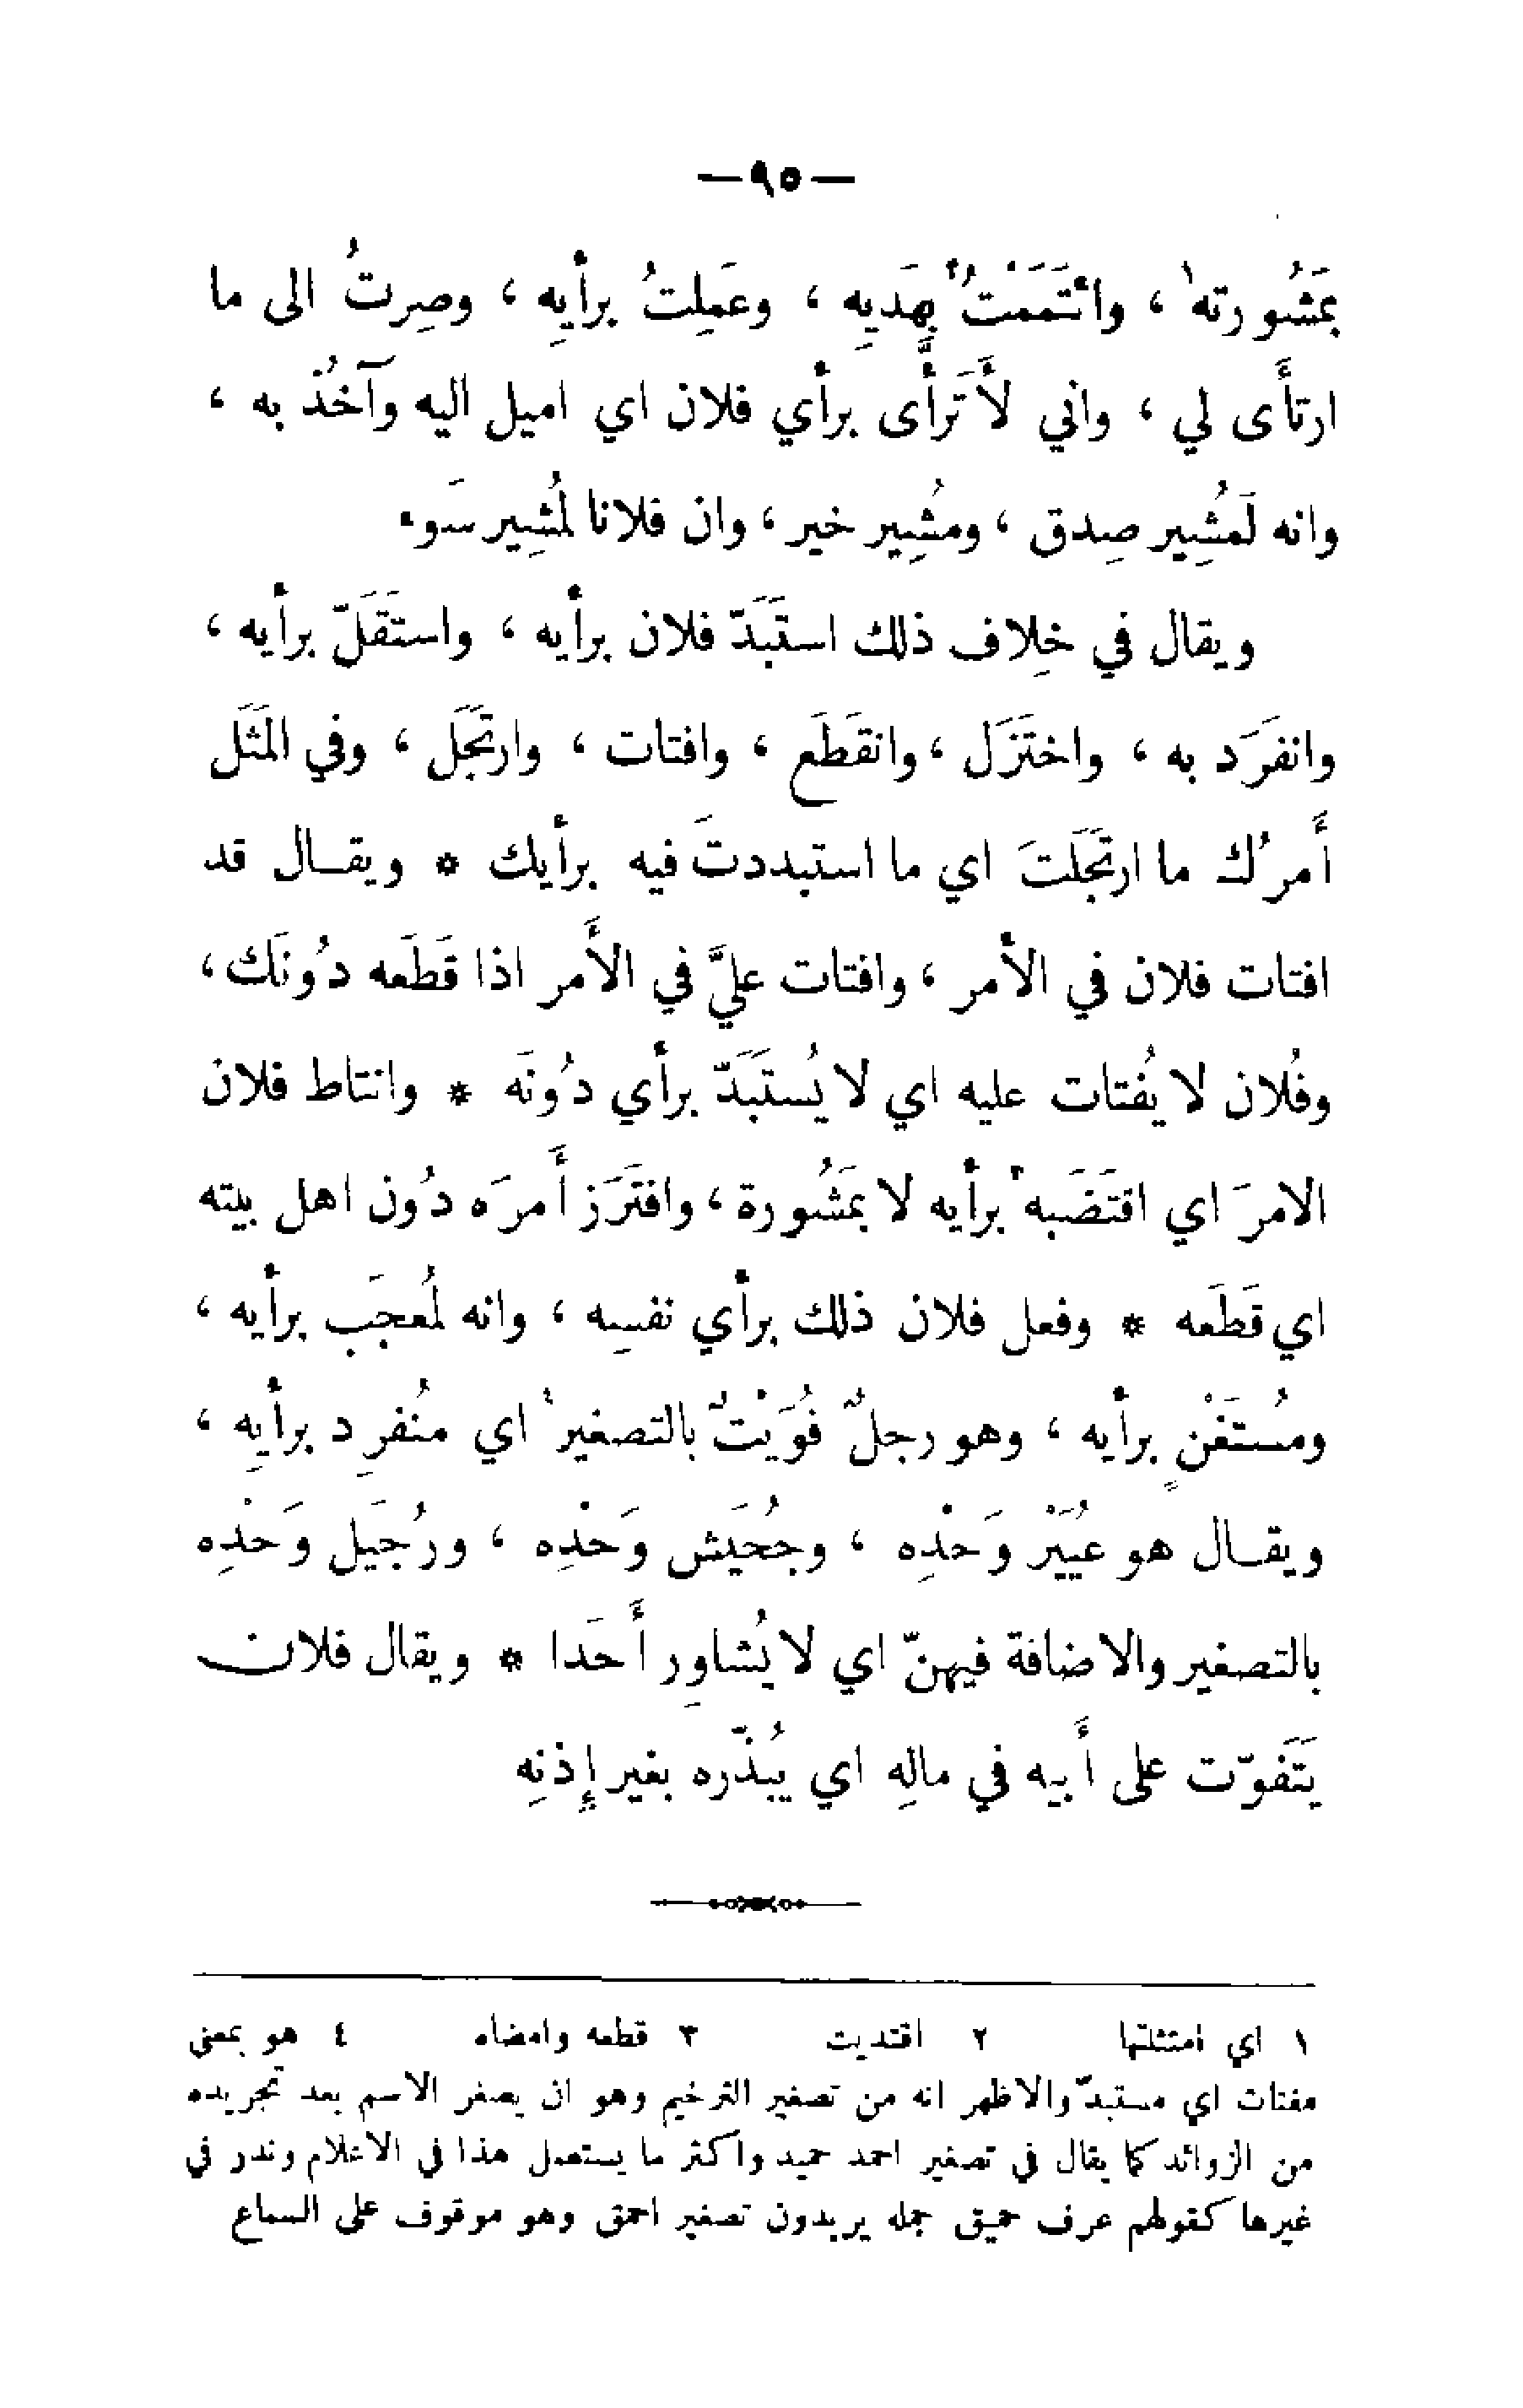 —٩٥—
بمَشُورته١ ، وائتَمَمْتُ٢ بهَديِهِ ، وعَمِلتُ برأيِهِ ، وصِرتُ الى ما
ارتأَى لي ، واني لأَتَرأَّى برأي فلان اي اميل اليه وآخُذ به ،
وانه لَمُشِير صِدق ، ومُشِير خير ، وان فلانا لمُشِير سَوء
ويقال في خِلاف ذلك استَبَدّ فلان برأيه ، واستَقَلّ برأيه ،
وانفرَد به ، واختَزَل ، وانقَطَع ، وافتات ، وارتَجَل ، وفي المَثَل
أَمرُك ما ارتَجَلتَ اي ما استبددتَ فيه برأيك * ويقال قد
افتات فلان في الأمر ، وافتات عليَّ في الأَمر اذا قَطَعه دُونَك ،
وفُلان لا يُفتات عليه اي لا يُستَبَدّ برأي دُونَه * وانتاط فلان
الامرَ اي اقتَضَبه٣ برأيه لا بمَشُورة ، وافتَرَز أَمرَه دُون اهل بيته
اي قَطَعه * وفعل فلان ذلك برأي نفسِه ، وانه لمُعجَب برأيه ،
ومُستَغْنٍ برأيه ، وهو رجلٌ فُوَيْتٌ بالتصغير٤ اي منُفرِد برأيِهِ ،
ويقال هو عُيَيْر وَحْدِه ، وجُحَيش وَحْدِه ، ورُجَيل وَحْدِه
بالتصغير والاضافة فيهنّ اي لا يُشاوِر أَحَدا * ويقال فلان
يَتَفَوّت على أَبيه في مالِه اي يُبذّره بغير إِذنِه
١ اي امتثلتها ٢ اقتديت ٣ قطعه وامضاه ٤ هو بمعنى
مفتات اي مستبدّ والاظهر انه من تصغير الترخيم وهو ان يصغر الاسم بعد تجريده
من الزوائد كما يقال في تصغير احمد حميد واكثر ما يستعمل هذا في الاعلام وندر في
غيرها كقولهم عرف حميق جمله يريدون تصغير احمق وهو موقوف على السماع